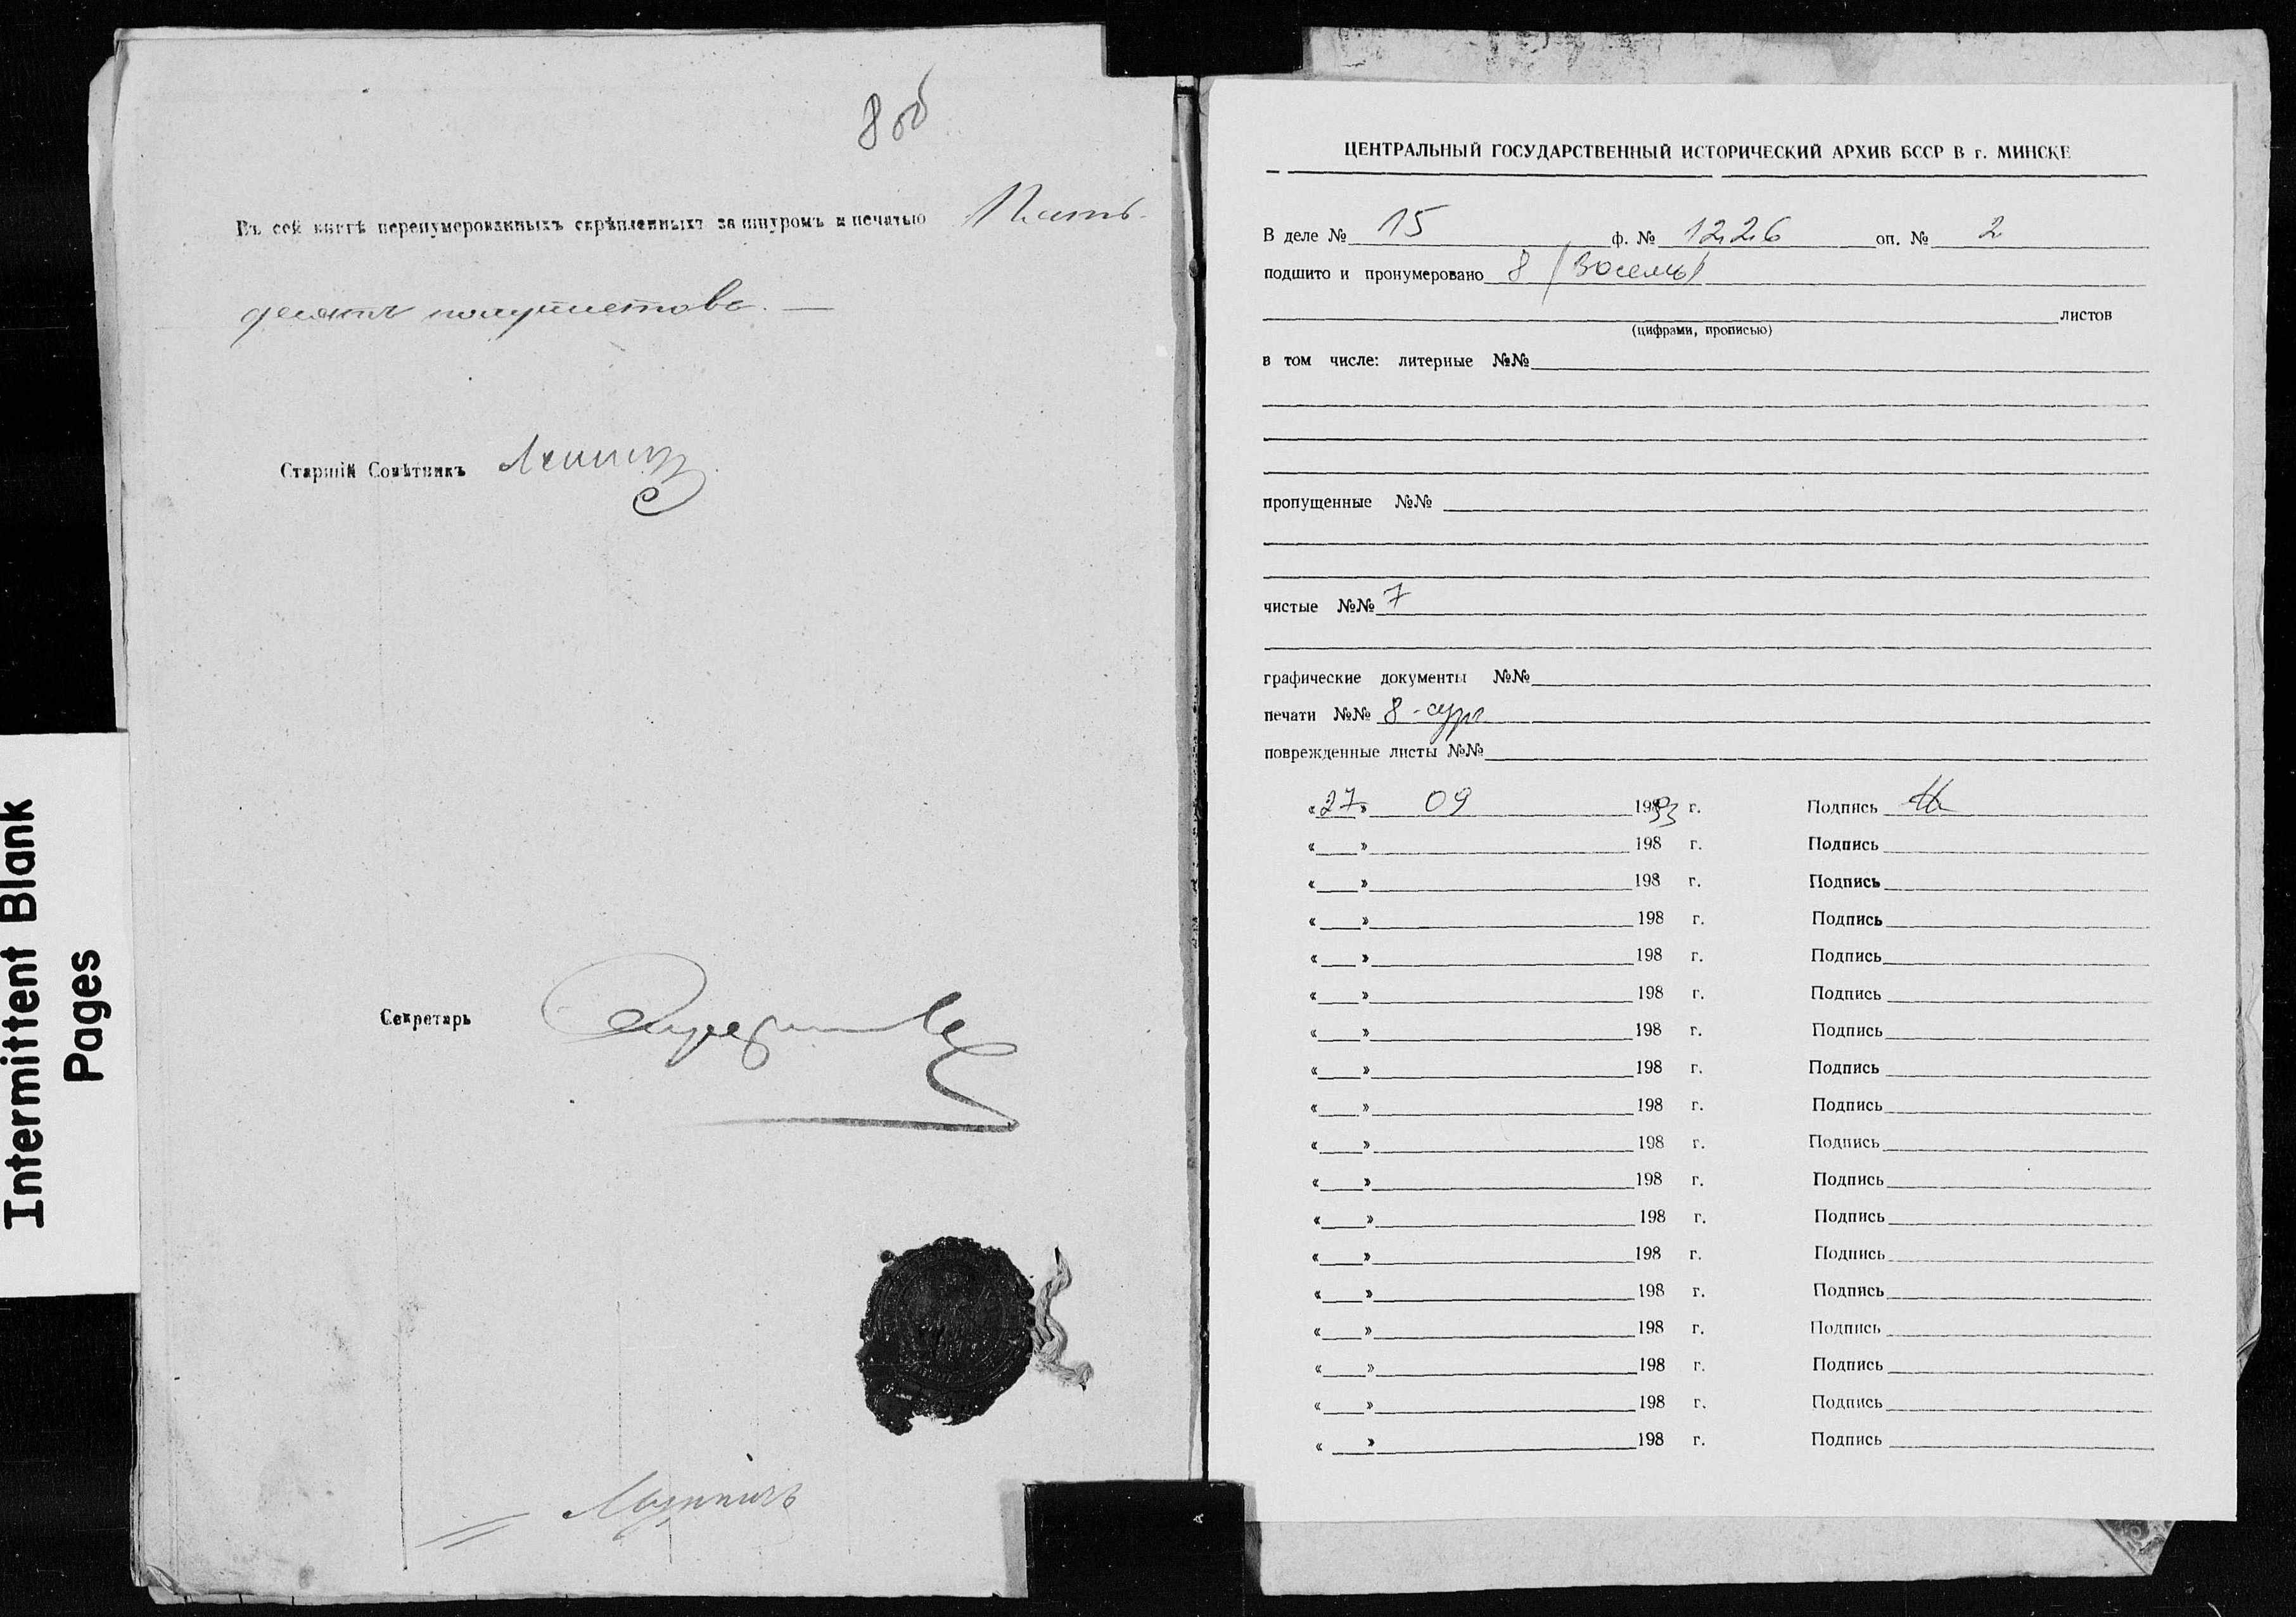 Intermittent Blank
Pages
8 об
Въ сей книгѣ перенумерованныхъ скрѣпленныхъ за шнуромъ и печатью Пять-
десятъ полулистовъ. —
Старшій Совѣтникъ
Секретарь
ЦЕНТРАЛЬНЫЙ ГОСУДАРСТВЕННЫЙ ИСТОРИЧЕСКИЙ АРХИВ БССР В г. МИНСКЕ
В деле № 15 ф. № 1226 оп. № 2
подшито и пронумеровано 8 (восемь)
листов
(цифрами, прописью)
в том числе: литерные №№
пропущенные №№
чистые №№ 7
графические документы №№
печати №№ 8-сург
поврежденные листы №№
«27» 09 1993 г. Подпись
« » 198 г. Подпись
« » 198 г. Подпись
« » 198 г. Подпись
« » 198 г. Подпись
« » 198 г. Подпись
« » 198 г. Подпись
« » 198 г. Подпись
« » 198 г. Подпись
« » 198 г. Подпись
« » 198 г. Подпись
« » 198 г. Подпись
« » 198 г. Подпись
« » 198 г. Подпись
« » 198 г. Подпись
« » 198 г. Подпись
« » 198 г. Подпись
« » 198 г. Подпись